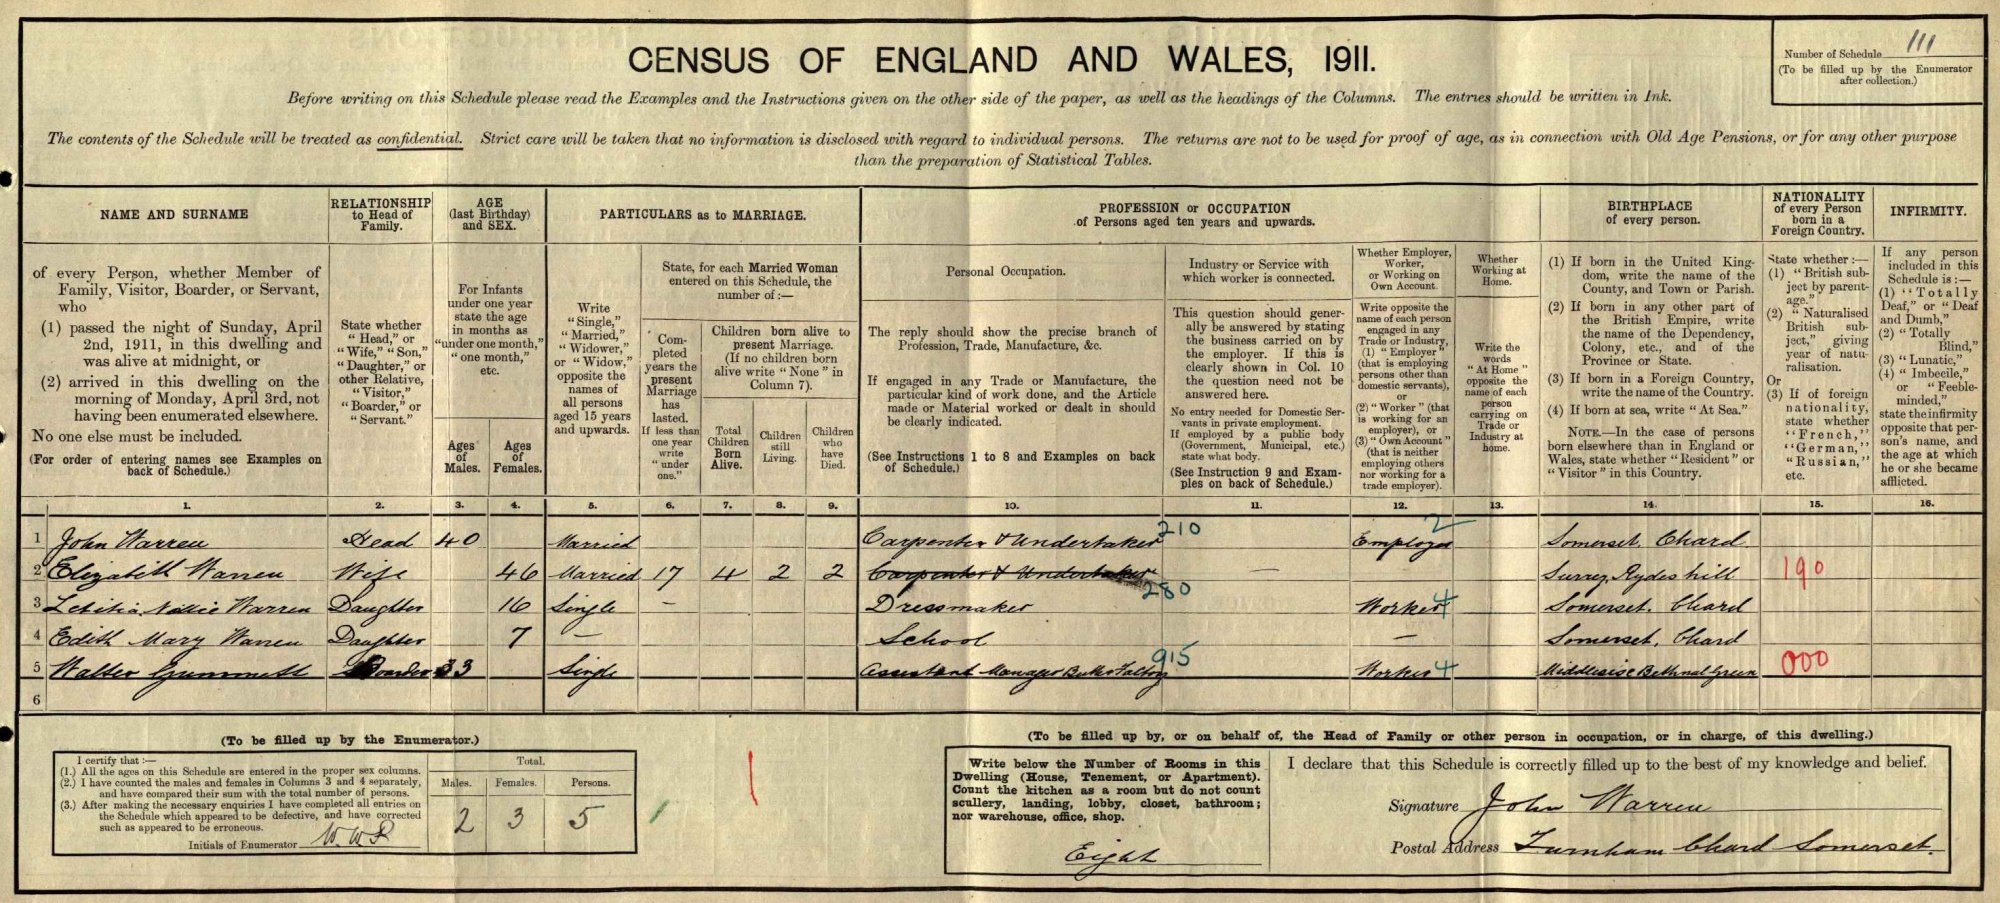 CENSUS OF ENGLAND AND WALES, 1911.
Number of Schedule 111
(To be filled up by the Enumerator
after collection.)
Before writing on this Schedule please read the Examples and the Instructions given on the other side of the paper, as well as the headings of the Columns. The entries should be written in Ink.
The contents of the Schedule will be treated as confidential. Strict care will be taken that no information is disclosed with regard to individual persons. The returns are not to be used for proof of age, as in connection with Old Age Pensions, or for any other purpose
than the preparation of Statistical Tables.
NAME AND SURNAME
of every Person, whether Member of
Family, Visitor, Boarder, or Servant,
who
(1) passed the night of Sunday, April
2nd, 1911, in this dwelling and
was alive at midnight, or
(2) arrived in this dwelling on the
morning of Monday, April 3rd, not
having been enumerated elsewhere.
No one else must be included.
(For order of entering names see Examples on
back of Schedule.)
RELATIONSHIP
to Head of
Family.
State whether
"Head," or
"Wife," "Son,"
"Daughter," or
other Relative,
"Visitor,"
"Boarder," or
"Servant."
AGE
(last Birthday)
and SEX.
For Infants
under one year
state the age
in months as
"under one month,"
"one month,"
etc.
Ages
of
Males.
Ages
of
Females.
PARTICULARS as to MARRIAGE.
Write
"Single,"
"Married,"
"Widower,"
or "Widow,"
opposite the
names of
all persons
aged 15 years
and upwards.
State, for each Married Woman
entered on this Schedule, the
number of :—
Com-
pleted
years the
present
Marriage
has
lasted.
If less than
one year
write
"under
one."
Children born alive to
present Marriage.
(If no children born
alive write "None" in
Column 7).
Total
Children
Born
Alive.
Children
still
Living.
Children
who
have
Died.
PROFESSION or OCCUPATION
of Persons aged ten years and upwards.
Personal Occupation.
The reply should show the precise branch of
Profession, Trade, Manufacture, &c.
If engaged in any Trade or Manufacture, the
particular kind of work done, and the Article
made or Material worked or dealt in should
be clearly indicated.
(See Instructions 1 to 8 and Examples on back
of Schedule.)
Industry or Service with
which worker is connected.
This question should gener-
ally be answered by stating
the business carried on by
the employer. If this is
clearly shown in Col. 10
the question need not be
answered here.
No entry needed for Domestic Ser-
vants in private employment.
If employed by a public body
(Government, Municipal, etc.)
state what body.
(See Instruction 9 and Exam-
ples on back of Schedule.)
Whether Employer,
Worker,
or Working on
Own Account.
Write opposite the
name of each person
engaged in any
Trade or Industry,
(1) "Employer"
(that is employing
persons other than
domestic servants),
or
(2) "Worker" (that
is working for an
employer), or
(3) "Own Account"
(that is neither
employing others
nor working for a
trade employer).
Whether
Working at
Home.
Write the
words
"At Home"
opposite the
name of each
person
carrying on
Trade or
Industry at
home.
BIRTHPLACE
of every person.
(1) If born in the United King-
dom, write the name of the
County, and Town or Parish.
(2) If born in any other part of
the British Empire, write
the name of the Dependency,
Colony, etc., and of the
Province or State.
(3) If born in a Foreign Country,
write the name of the Country.
(4) If born at sea, write "At Sea."
NOTE.—In the case of persons
born elsewhere than in England or
Wales, state whether "Resident" or
"Visitor" in this Country.
NATIONALITY
of every Person
born in a
Foreign Country.
State whether :—
(1) "British sub-
ject by parent-
age."
(2) "Naturalised
British sub-
ject," giving
year of natu-
ralisation.
Or
(3) If of foreign
nationality,
state whether
"French,"
"German,"
"Russian,"
etc.
INFIRMITY.
If any person
included in this
Schedule is :—
(1) "Totally
Deaf," or "Deaf
and Dumb,"
(2) "Totally
Blind,"
(3) "Lunatic,"
(4) "Imbecile,"
or "Feeble-
minded,"
state the infirmity
opposite that per-
son's name, and
the age at which
he or she became
afflicted.
1. 2. 3. 4. 5. 6. 7. 8. 9. 10. 11. 12. 13. 14. 15. 16.
1 John Warren Head 40 Married Carpenter & Undertaker 210 Employer 2 Somerset, Chard
2 Elizabeth Warren Wife 46 Married 17 4 2 2 Carpenter & Undertaker — Surrey, Rydes hill 190
3 Letitia Nellie Warren Daughter 16 Single — Dressmaker 280 Worker 4 Somerset, Chard
4 Edith Mary Warren Daughter 7 — School — Somerset, Chard
5 Walter Gummett Boarder 33 Single Assistant Manager Butter Factory 915 Worker 4 Middlesise Bethnal Green 000
6
(To be filled up by the Enumerator.)
I certify that :—
(1.) All the ages on this Schedule are entered in the proper sex columns.
(2.) I have counted the males and females in Columns 3 and 4 separately,
and have compared their sum with the total number of persons.
(3.) After making the necessary enquiries I have completed all entries on
the Schedule which appeared to be defective, and have corrected
such as appeared to be erroneous.
Initials of Enumerator
Total.
Males. Females. Persons.
2 3 5
(To be filled up by, or on behalf of, the Head of Family or other person in occupation, or in charge, of this dwelling.)
Write below the Number of Rooms in this
Dwelling (House, Tenement, or Apartment).
Count the kitchen as a room but do not count
scullery, landing, lobby, closet, bathroom;
nor warehouse, office, shop.
Eight
I declare that this Schedule is correctly filled up to the best of my knowledge and belief.
Signature John Warren
Postal Address Furnham Chard Somerset.